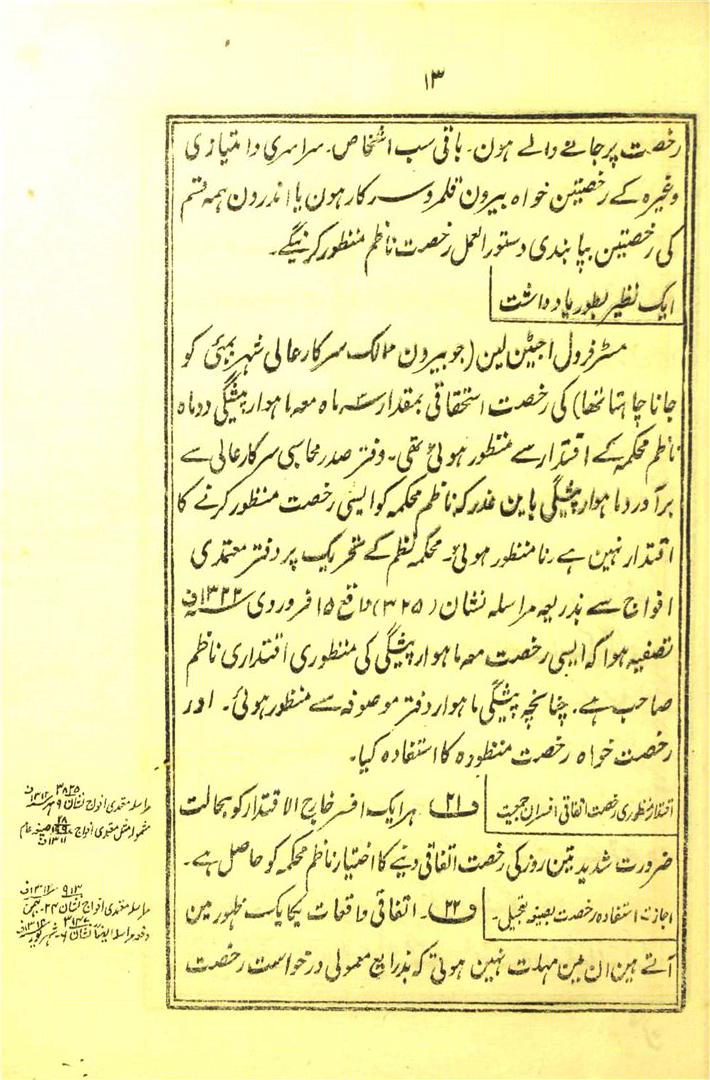 ۱۳
رخصت پر جانے والے ہون۔ باقی سب اشخاص۔ سراسری و امتیازی
وغیرہ کے رخصیتین خواہ بیرون قلمرو سرکار ہون یا اندرون ہمہ قسم
کی رخصیتین بپابندی دستور العمل رخصت ناظم منظور کرینگے۔
ایک نظیر بطور یادداشت
مسٹر فرول اجیٹن لین (جو بیرون ممالک سرکار عالی شہر بمبئی کو
جانا چاہتا تھا) کی رخصت استحقاقی بمقدار سہ ماہ معہ ماہوار پیشگی دو ماہ
ناظم محکمہ کے اقتدار سے منظور ہوئی تھی۔ دفتر صدر محاسبی سرکار عالی سے
برآورد ماہوار پیشگی باین عذر کہ ناظم محکمہ کو ایسی رخصت منظور کرنے کا
اقتدار نہین ہے نا منظور ہوئی۔ محکمہ نظم کے تحریک پر دفتر معتمدی
افواج سے بذریعہ مراسلہ نشان (۳۲۵) واقع ۱۵ فروردی ۱۳۲۲ف
تصفیہ ہوا کہ ایسی رخصت معہ ماہوار پیشگی کی منظوری اقتداری ناظم
صاحب ہے۔ چنانچہ پیشگی ماہوار دفتر موصوفہ سے منظور ہوئی۔ اور
رخصت خواہ رخصت منظورہ کا استفادہ کیا۔
اقتدار منظوری رخصت اتفاقی افسران جمعیت
ف (۲۱) ہر ایک افسر خارج الاقتدار کو بحالت
ضرورت شدید تین روز کی رخصت اتفاقی دینے کا اختیار ناظم محکمہ کو حاصل ہے۔
اجازت استفادہ رخصت بصیغہ تعجیل۔
ف (۲۲)۔ اتفاقی واقعات یکایک ظہور مین
آتے ہین ان مین مہلت نہین ہوتی کہ بذرایع معمولی درخواست رخصت
مراسلہ معتمدی افواج نشان ۳۸۲۵
مراسلہ معتمدی افواج نشان ۹۱۳